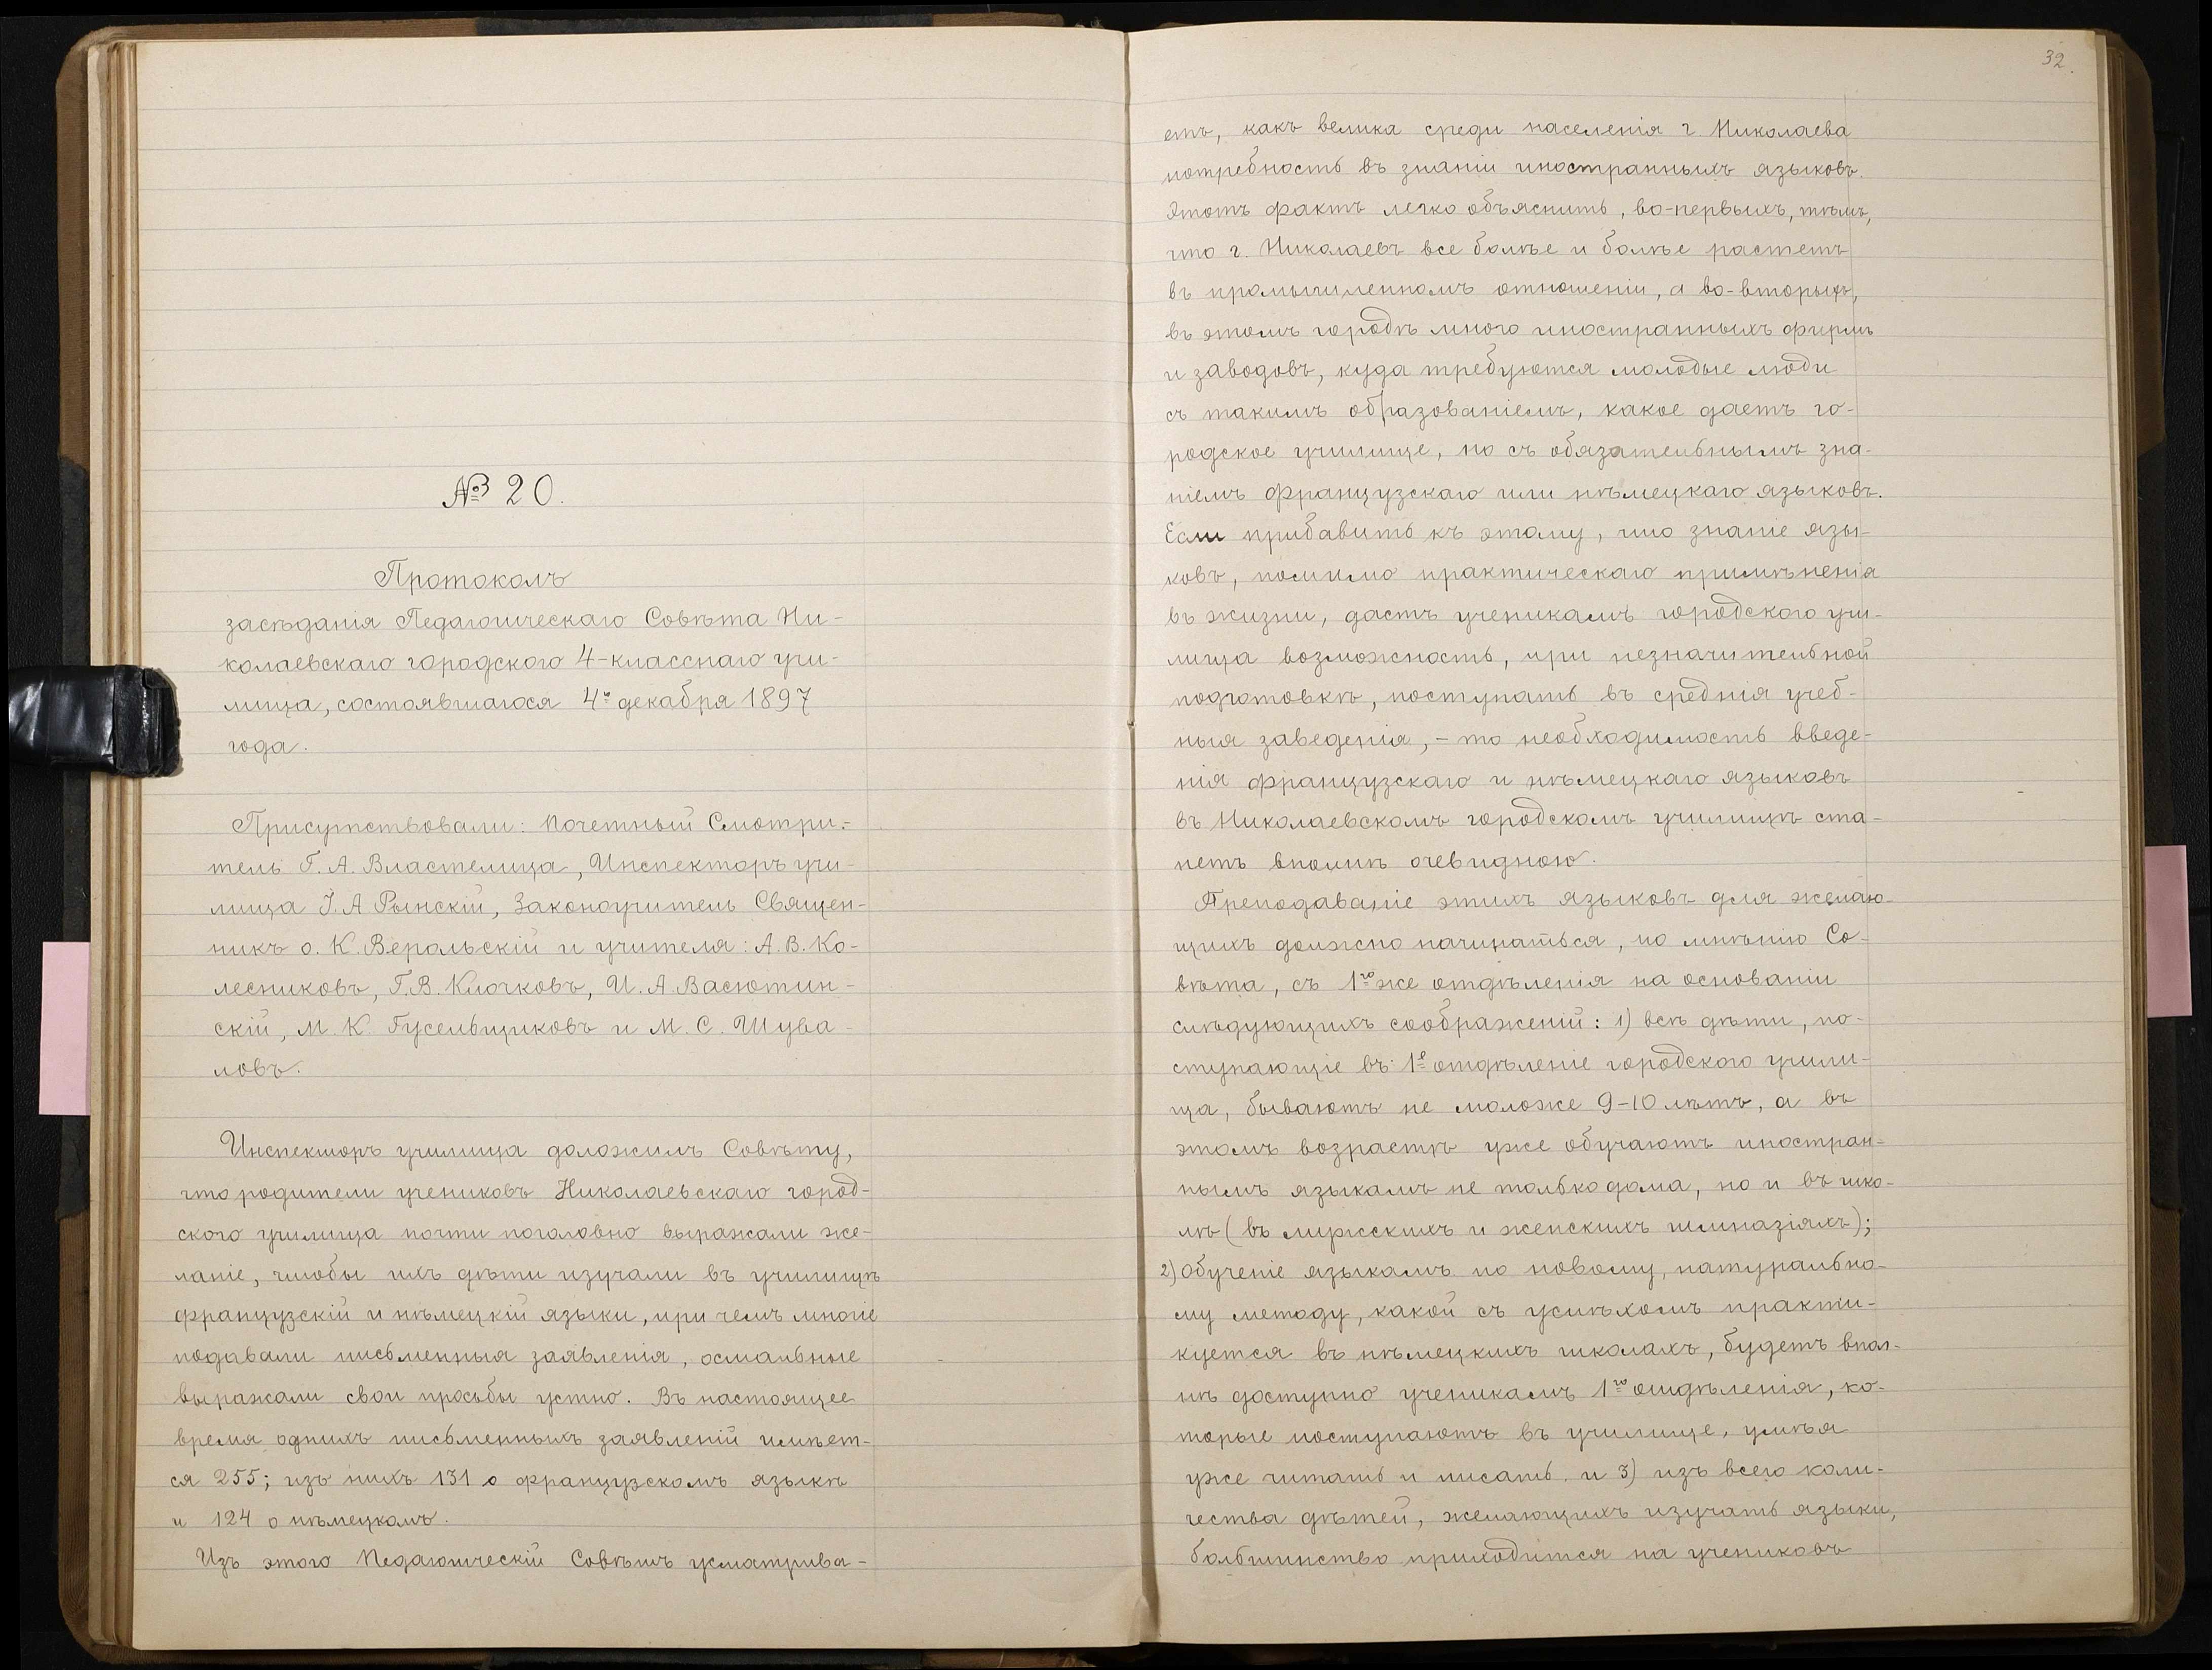 № 20.
Протоколъ
засѣданія Педагогическаго Совѣта Ни-
колаевскаго городского 4-класснаго учи-
лища, состоявшагося 4го декабря 1897
года.
Присутствовали: Почетный Смотри-
тель Г. А. Властелица, Инспекторъ учи-
лища І. А. Рынскій, Законоучитель Священ-
никъ о. К. Верольскій и учителя: А. В. Ко-
лесниковъ, Г. В. Клочковъ, И. А. Васютин-
скій, М. К. Гусельщиковъ и М. С. Шува-
ловъ.
Инспекторъ училища доложилъ Совѣту,
что родители учениковъ Николаевскаго город-
ского училища почти поголовно выражали же-
ланіе, чтобы ихъ дѣти изучали въ училищѣ
французскій и нѣмецкій языки, при чемъ многіе
подавали письменныя заявленія, остальные
выражали свои просьбы устно. Въ настоящее
время однихъ письменныхъ заявленій имѣет-
ся 255; изъ нихъ 131 о французскомъ языкѣ
и 124 о нѣмецкомъ.
Изъ этого Педагогическій Совѣтъ усматрива-
32.
етъ, какъ велика среди населенія г. Николаева
потребность въ знаніи иностранныхъ языковъ.
Этотъ фактъ легко объяснить, во-первыхъ, тѣмъ,
что г. Николаевъ все болѣе и болѣе растетъ
въ промышленномъ отношеніи, а во-вторыхъ,
въ этомъ городѣ много иностранныхъ фирмъ
и заводовъ, куда требуются молодые люди
съ такимъ образованіемъ, какое даетъ го-
родское училище, но съ обязательнымъ зна-
ніемъ французскаго или нѣмецкаго языковъ.
Если прибавить къ этому, что знаніе язы-
ковъ, помимо практическаго примѣненія
въ жизни, дастъ ученикамъ городского учи-
лища возможность, при незначительной
подготовкѣ, поступать въ среднія учеб-
ныя заведенія, - то необходимость введе-
нія французскаго и нѣмецкаго языковъ
въ Николаевскомъ городскомъ училищѣ ста-
нетъ вполнѣ очевидною.
Преподаваніе этихъ языковъ для желаю-
щихъ должно начинаться, по мнѣнію Со-
вѣта, съ 1го же отдѣленія на основаніи
слѣдующихъ соображеній: 1) всѣ дѣти, по-
ступающіе въ 1е отдѣленіе городского учили-
ща, бываютъ не моложе 9-10 лѣтъ, а въ
этомъ возрастѣ уже обучаютъ иностран-
нымъ языкамъ не только дома, но и въ шко-
лѣ (въ мужскихъ и женскихъ гимназіяхъ);
2) обученіе языкамъ по новому, натурально-
му методу, какой съ успѣхомъ практи-
куется въ нѣмецкихъ школахъ, будетъ впол-
нѣ доступно ученикамъ 1го отдѣленія, ко-
торые поступаютъ въ училище, умѣя
уже читать и писать. и 3) изъ всего коли-
чества дѣтей, желающихъ изучать языки,
большинство приходится на учениковъ